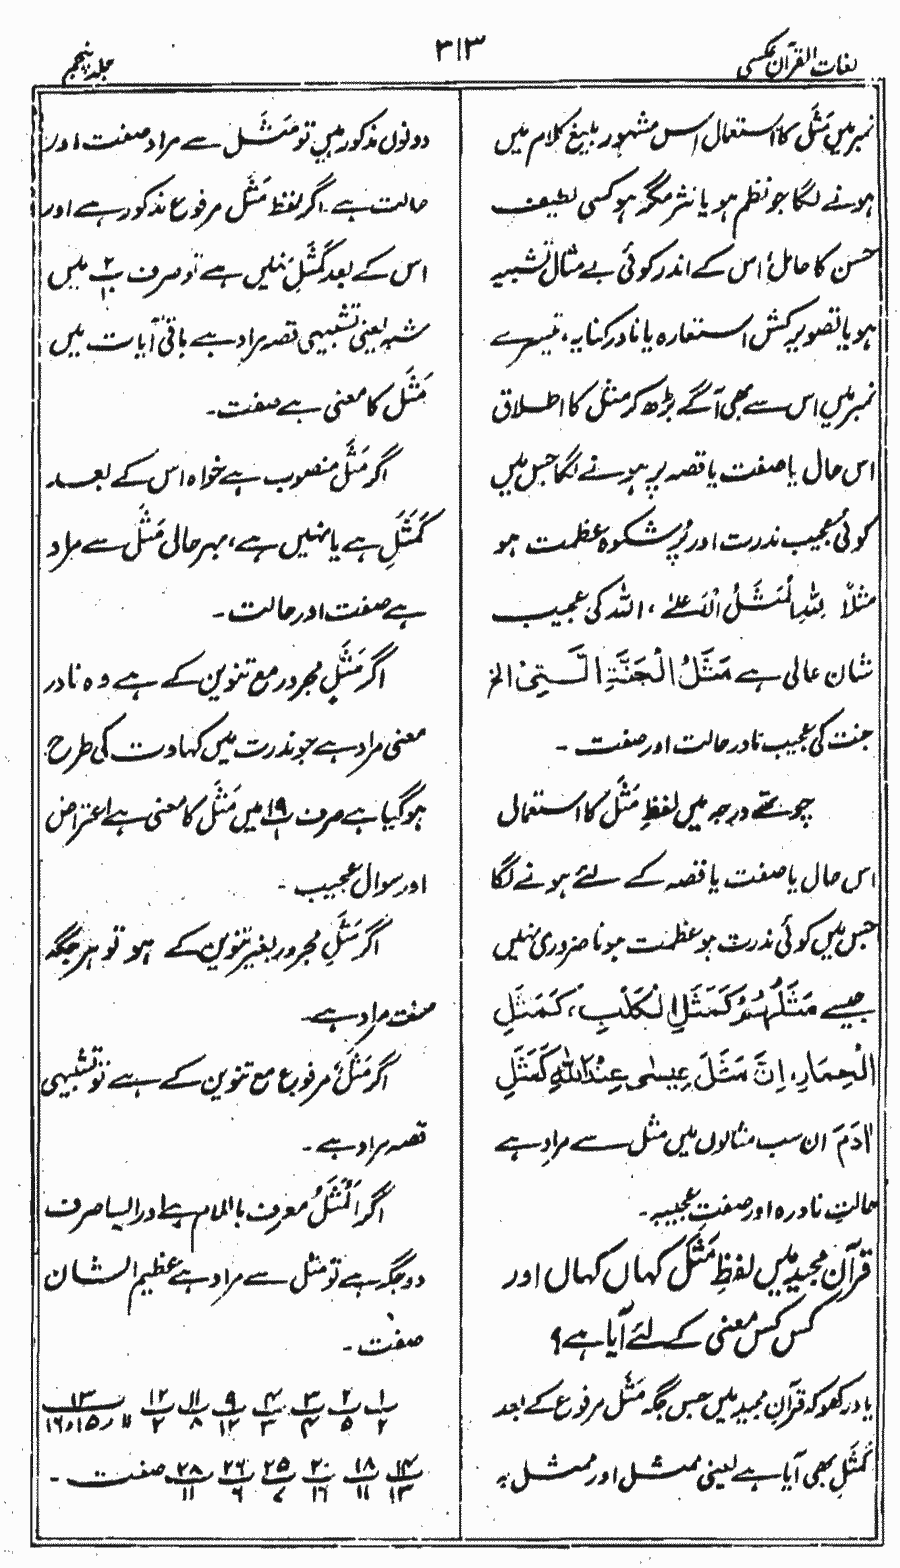 لغات القرآن عکسی
۳۱۳
جلد پنجم
نمبر میں مَثَل کا استعمال اس مشہور بلیغ کلام میں
ہونے لگا جو نظم ہو یا نثر مگر ہو کسی لطیف
حسن کا حامل؛ اس کے اندر کوئی بے مثال تشبیہ
ہو یا تصویر کش استعارہ یا نادر کنایہ، تیسرے
نمبر میں اس سے بھی آگے بڑھ کر مثل کا اطلاق
اس حال یا صفت یا قصہ پر ہونے لگا جس میں
کوئی عجیب ندرت اور پُر شکوہ عظمت ہو
مثلاً لِلّٰہِ الْمَثَلُ الْاَعْلٰے، اللہ کی عجیب
شان عالی ہے مَثَلُ الْجَنَّۃِ الَّتِیْ الخ
جنت کی عجیب نادر حالت اور صفت ۔
چوتھے درجہ میں لفظِ مَثَل کا استعمال
اس حال یا صفت یا قصہ کے لئے ہونے لگا
جس میں کوئی ندرت ہو عظمت ہونا ضروری نہیں
جیسے مَثَلُہُمْ کَمَثَلِ الْکَلْبِ، کَمَثَلِ
الْحِمَارِ، اِنَّ مَثَلَ عِیسٰی عِنْدَ اللّٰہِ کَمَثَلِ
اٰدَمَ ان سب مثالوں میں مثل سے مراد ہے
حالتِ نادرہ اور صفتِ عجیبہ ۔
قرآن مجید میں لفظِ مَثَل کہاں کہاں اور
کس کس معنی کے لئے آیا ہے؟
یاد رکھو کہ قرآن مجید میں جس جگہ مَثَل مرفوع کے بعد
کَمَثَلِ بھی آیا ہے یعنی ممثل اور ممثل بہ
دونوں مذکور ہیں تو مَثَل سے مراد صفت اور
حالت ہے۔ اگر لفظ مَثَل مرفوع مذکور ہے اور
اس کے بعد کَمَثَلِ نہیں ہے تو صرف ۲ب۱۰ میں
شبہ یعنی تشبیہی قصہ مراد ہے باقی آیات میں
مَثَل کا معنی ہے صفت ۔
اگر مَثَل منصوب ہے خواہ اس کے بعد
کَمَثَلِ ہے یا نہیں ہے، بہر حال مَثَل سے مراد
ہے صفت اور حالت ۔
اگر مَثَلٍ مجرور مع تنوین کے ہے وہ نادر
معنی مراد ہے جو ندرت میں کہاوت کی طرح
ہوگیا ہے صرف ۱۹ب۱ میں مَثَل کا معنی ہے اعتراض
اور سوال عجیب ۔
اگر مَثَلِ مجرور بغیر تنوین کے ہو تو ہر جگہ
صفت مراد ہے ۔
اگر مَثَلٌ مرفوع مع تنوین کے ہے تو تشبیہی
قصہ مراد ہے ۔
اگر اَلْمَثَلُ معرف باللام ہے اور ایسا صرف
دو جگہ ہے تو مثل سے مراد ہے عظیم الشان
صفت ۔
۱ب۲ ۲ب۵ ۳ب۴ ۴ب۳ ۹ب۱۲ ۱۱ب۸ ۱۲ب۲ ۱۳ب۱۱ر۱۵و۱۶
۱۴ب۱۳ ۱۸ب۱۱ ۲۰ب۱۶ ۲۵ب۷ ۲۶ب۶ ۲۸ب۱۱ صفت ۔